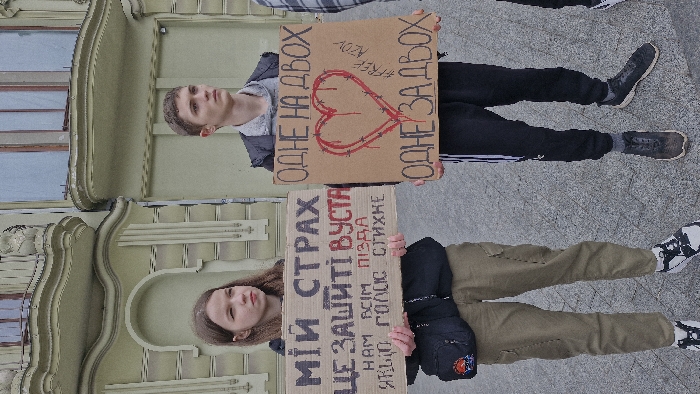 МІЙ СТРАХ
ЦЕ ЗАШИТІ ВУСТА
НАМ ВСІМ ПІЗДА
ЯКЩО ГОЛОС СТИХНЕ
ОДНЕ НА ДВОХ
#FREE
AZOV
ОДНЕ ЗА ДВОХ